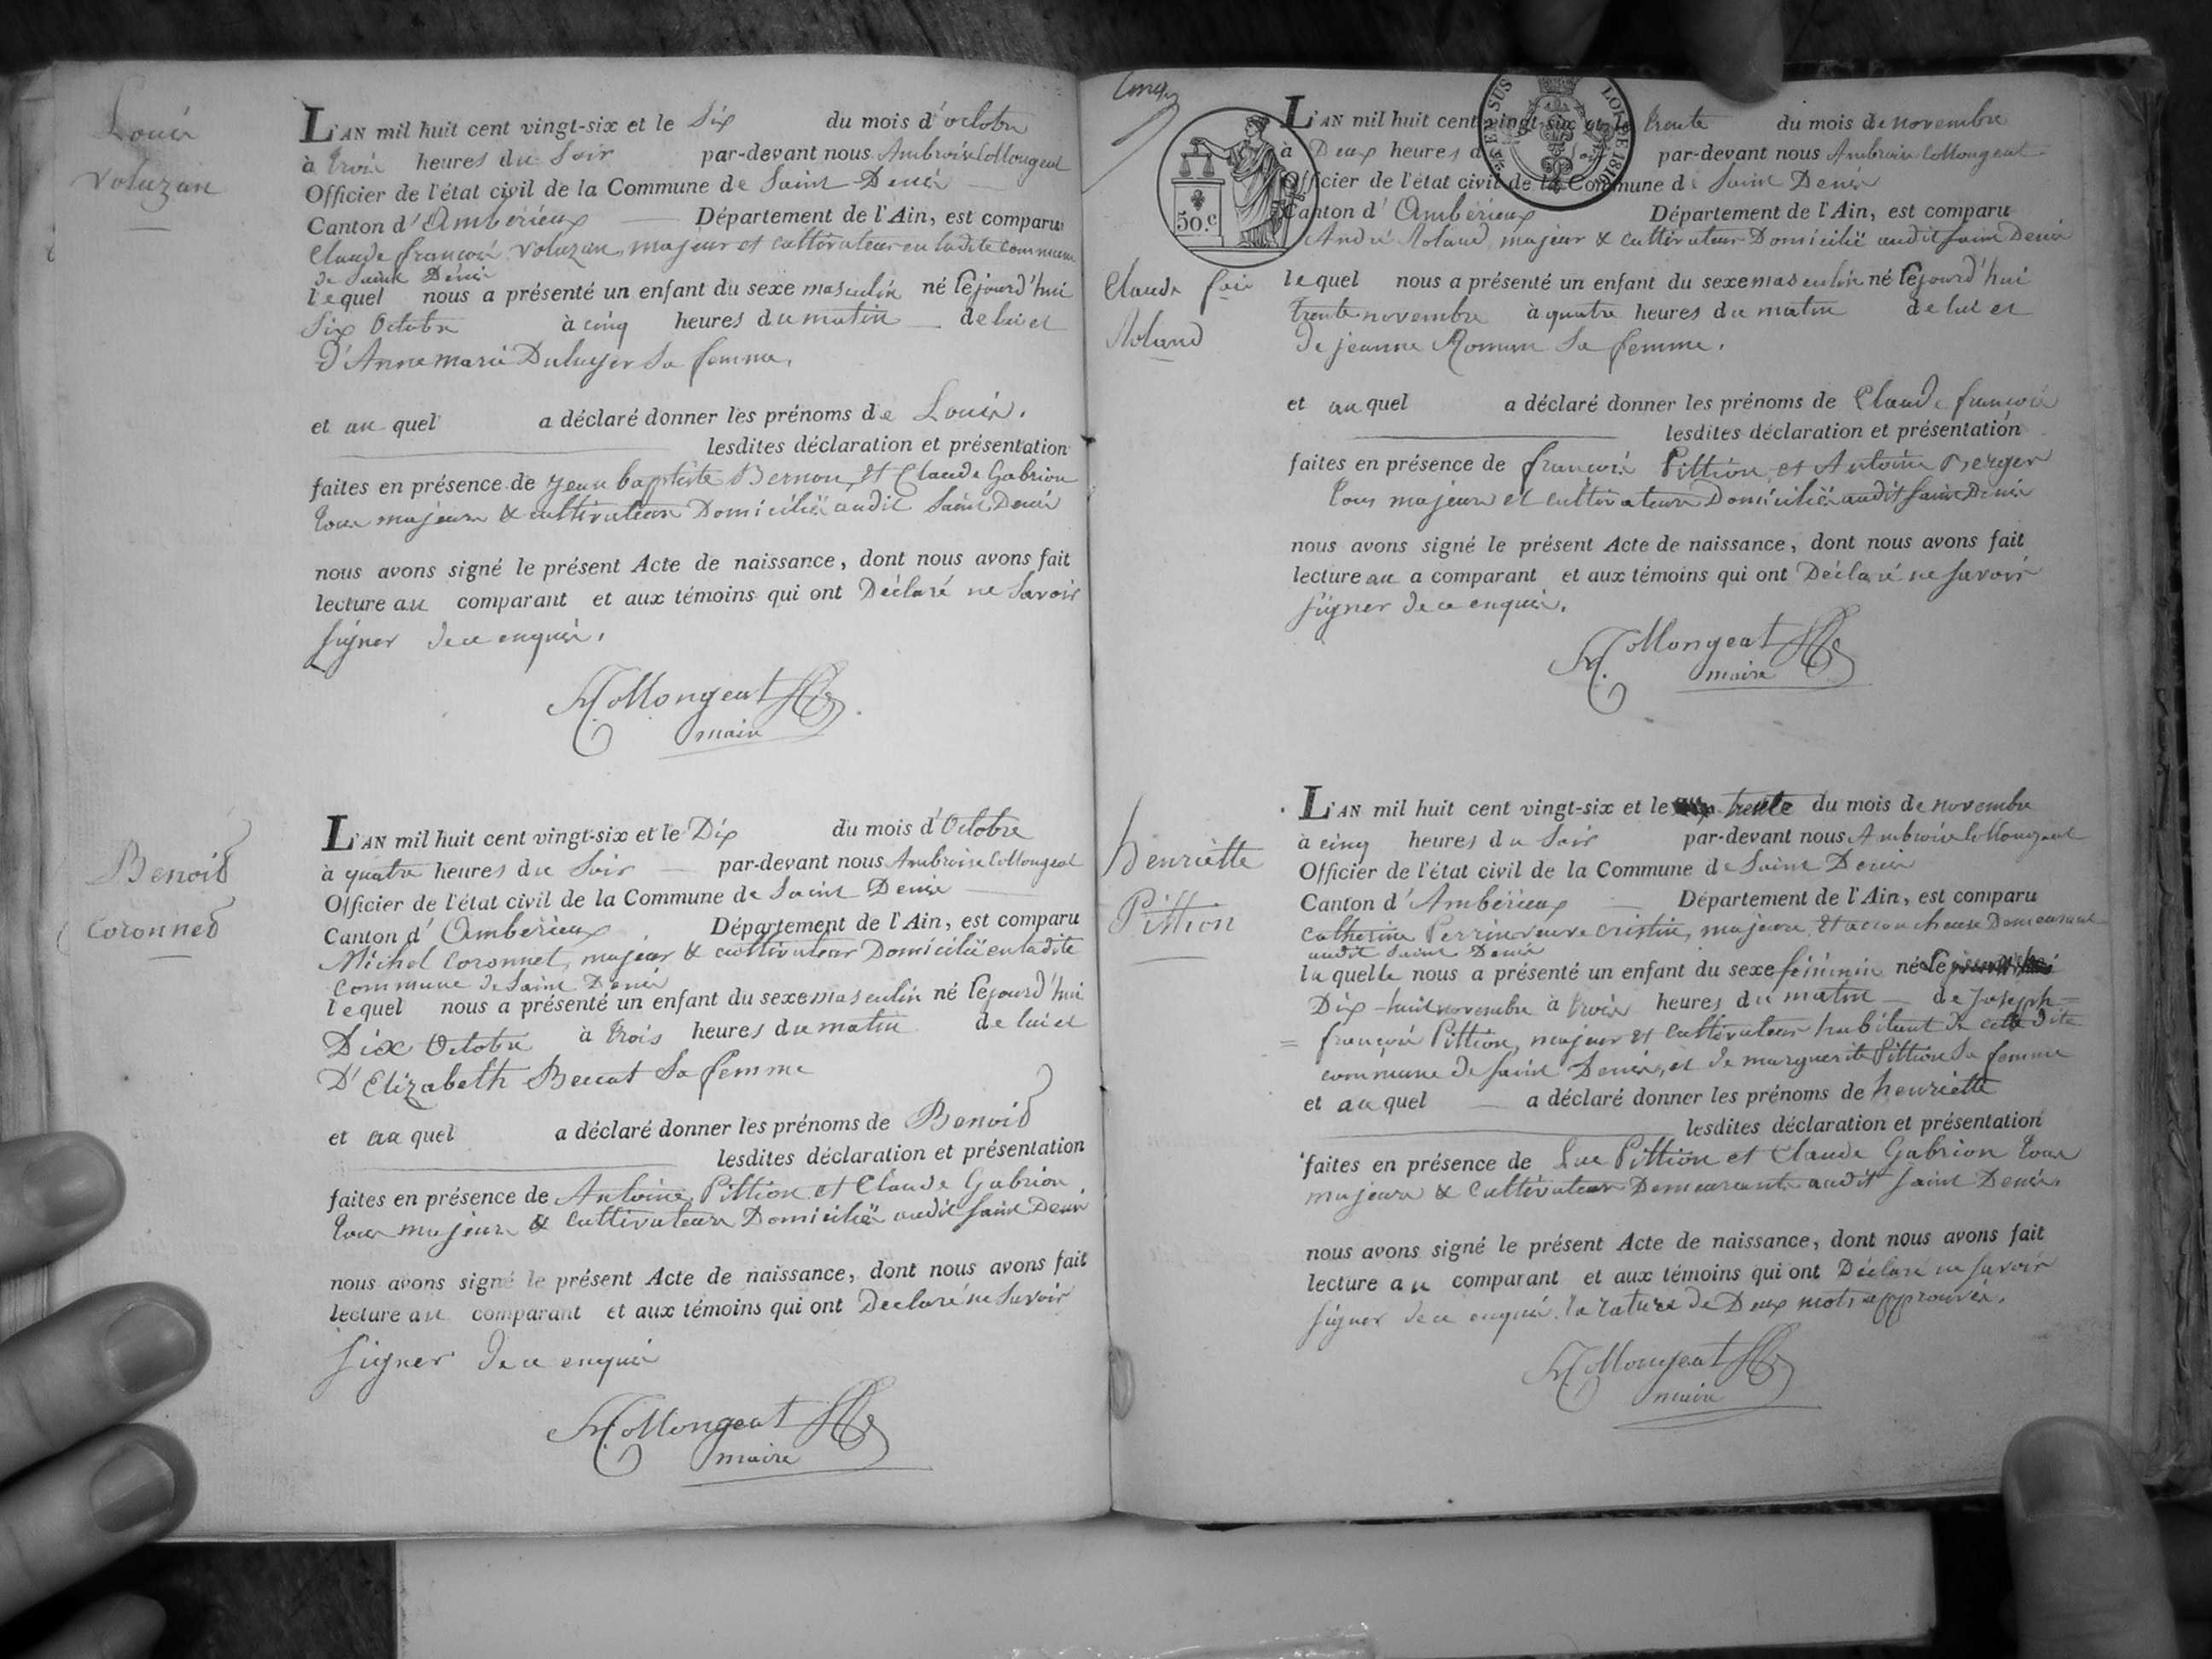 Louis
Voluzan
L'AN mil huit cent vingt-six et le Six du mois d'octobre
à trois heures du Soir par-devant nous Ambroise Collongeat
Officier de l'état civil de la Commune de Saint-Denis
Canton d'Ambérieux Département de l'Ain, est comparu
Claude françois Voluzan, majeur et cultivateur en ladite commune
de Saint Denis
lequel nous a présenté un enfant du sexe masculin né le jourd'hui
Six Octobre à cinq heures du matin de lui et
D'Anne marie sa femme,
et au quel a déclaré donner les prénoms de Louis.
lesdites déclaration et présentation
faites en présence de jean baptiste Bernou, et Claude Gabrion
tous majeurs & cultivateurs Domiciliés audit Saint Denis
nous avons signé le présent Acte de naissance, dont nous avons fait
lecture au comparant et aux témoins qui ont Déclaré ne Savoir
signer de ce enquis.
Collongeat
maire
Benoit
Coronnet
L'AN mil huit cent vingt-six et le Dix du mois d'Octobre
à quatre heures du Soir par-devant nous Ambroise Collongeat
Officier de l'état civil de la Commune de Saint Denis
Canton d'Ambérieux Département de l'Ain, est comparu
Michel Coronnet, majeur & cultivateur Domicilié en ladite
Commune de Saint Denis
lequel nous a présenté un enfant du sexe masculin né le jourd'hui
Dix Octobre à trois heures du matin de lui et
D'Elizabeth Beccat Sa femme
et au quel a déclaré donner les prénoms de Benoit
lesdites déclaration et présentation
faites en présence de Antoine Pittion et Claude Gabrion
tous majeurs & cultivateurs Domiciliés audit Saint Denis
nous avons signé le présent Acte de naissance, dont nous avons fait
lecture au comparant et aux témoins qui ont Déclaré ne Savoir
Signer de ce enquis
Collongeat
maire
50.c
LOI DE 1816
Claude fois
Roland
L'AN mil huit cent vingt-six et le trente du mois de novembre
à Deux heures du Soir par-devant nous Ambroise Collongeat
Officier de l'état civil de la Commune de Saint Denis
Canton d'Ambérieux Département de l'Ain, est comparu
André Roland, majeur & cultivateur Domicilié audit Saint Denis
lequel nous a présenté un enfant du sexe masculin né le jourd'hui
trente novembre à quatre heures du matin de lui et
de jeanne Roman Sa femme.
et au quel a déclaré donner les prénoms de Claude françois
lesdites déclaration et présentation
faites en présence de françois Pittion, et Antoine Berger
tous majeurs et cultivateurs Domiciliés audit Saint Denis
nous avons signé le présent Acte de naissance, dont nous avons fait
lecture au a comparant et aux témoins qui ont Déclaré ne Savoir
signer de ce enquis.
Collongeat
maire
henriette
Pittion
L'AN mil huit cent vingt-six et le trente du mois de novembre
à cinq heures du Soir par-devant nous Ambroise Collongeat
Officier de l'état civil de la Commune de Saint Denis
Canton d'Ambérieux Département de l'Ain, est comparu
Catherine Perrin veuve Cristin, majeure, et accoucheuse Demeurant
audit Saint Denis
laquelle nous a présenté un enfant du sexe féminin né le
Dix-huit novembre à trois heures du matin de Joseph=
= françois Pittion, majeur et cultivateur habitant de cette dite
commune de Saint Denis, et de marguerite Pittion Sa femme
et au quel a déclaré donner les prénoms de henriette
lesdites déclaration et présentation
faites en présence de Luc Pittion et Claude Gabrion tous
majeurs & cultivateurs Demeurants audit Saint Denis.
nous avons signé le présent Acte de naissance, dont nous avons fait
lecture au comparant et aux témoins qui ont Déclaré ne Savoir
signer de ce enquis. la rature de Deux mots approuvés.
Collongeat
maire